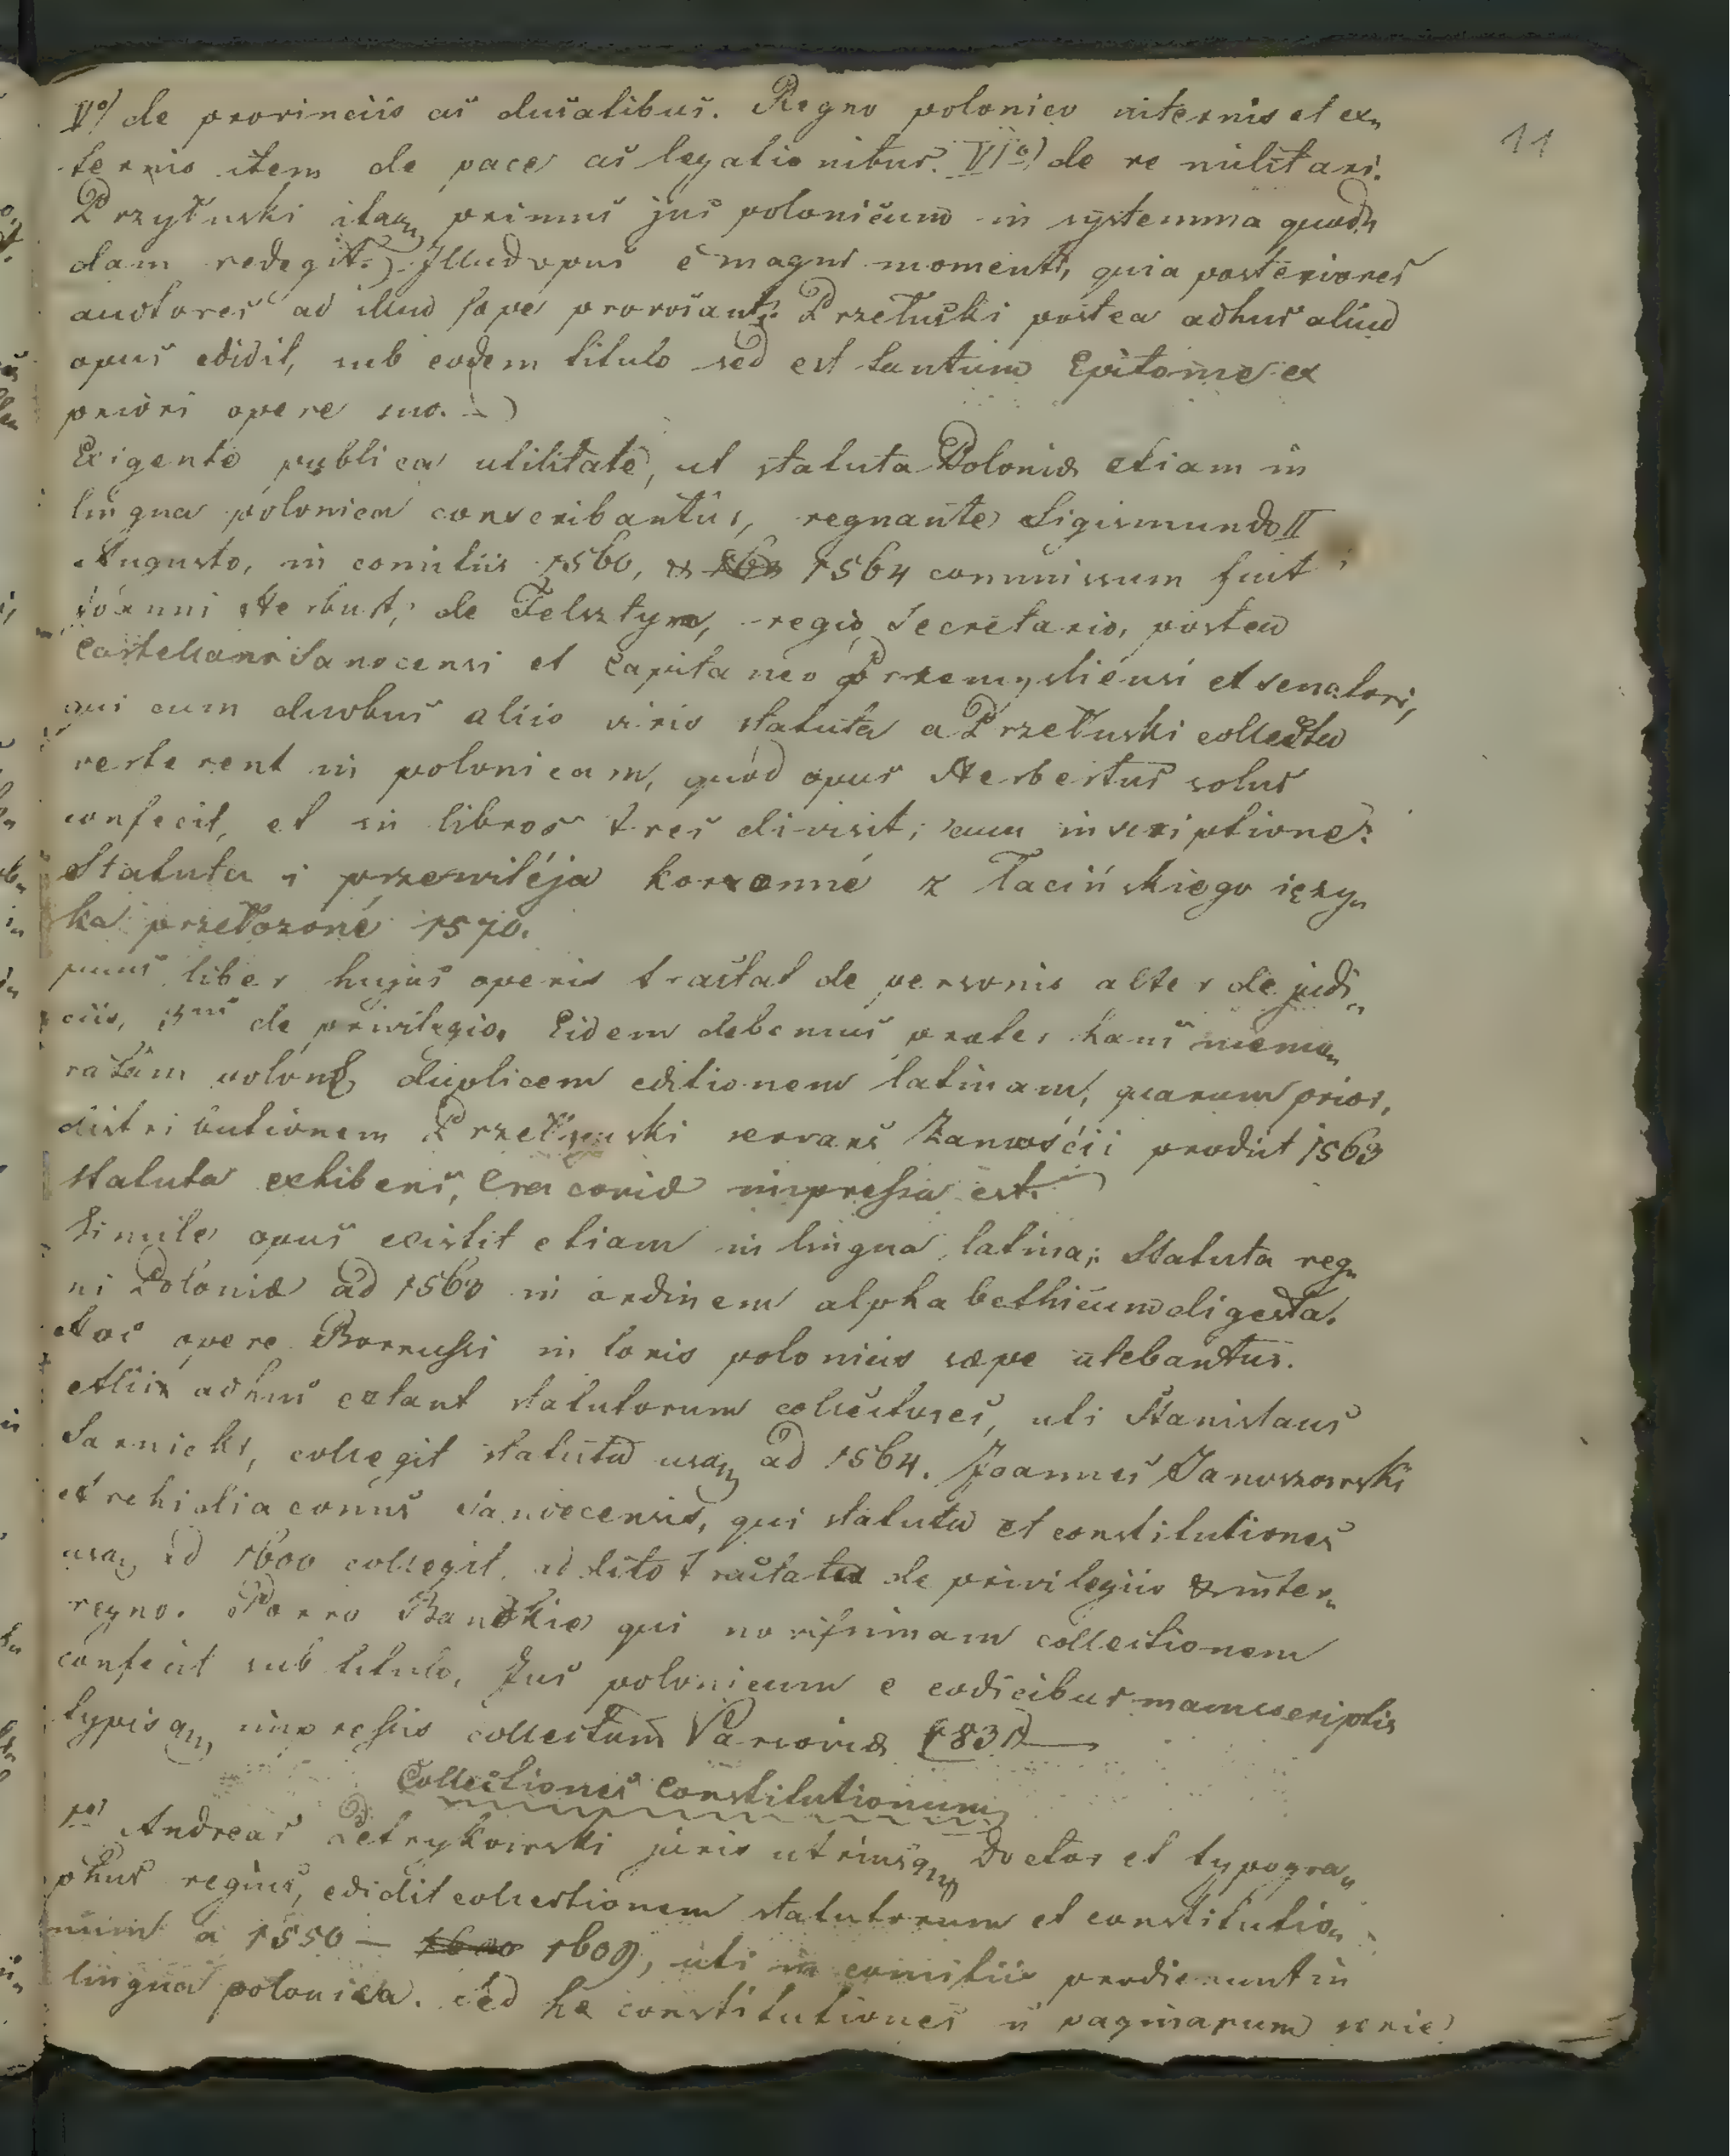 11
Vo/ de provinciis ac ducatibus. Regno polonico internis et ex„
ternis item de pace ac legationibus. VIo) de re militari.
Przyłuski itaq primus jus polonicum in systemma quod„
dam redegit. Illud opus e magni momenti, quia posteriores
auctores ad illud sæpe provocant. Przełuski postea adhuc aliud
opus edidit, sub eodem titulo sed est tantum Epitome ex
priori opere suo.
Exigente publica utilitate, ut statuta Poloniæ etiam in
lingua polonica conscribantur, regnante Sigismundo II
Augusto, in comitiis 1560, & 1564 commissum fuit
Joanni Herburt, de Felsztyn, regio Secretario, postea
Castellano Sanocensi et Capitaneo Przemysliensi et senatori,
qui cum duobus aliis viris statuta a Przełuski collecta
verterent in polonicam, quod opus Herbertus solus
confecit, et in libros tres divisit, cum inscriptione:
Statuta i przewiléja koronné z łacińskiego języ„
ka przełozoné 1570.
liber hujus operis tractat de personis alter de judi„
ciis, 3us de privilegio. Eidem debemus præter hanc memo„
ratam duplicem editionem latinam, quarum prior,
distributionem Przełuski servans Zamoscii prodiit 1563
statuta exhibens, Cracoviæ impressa est.
Simile opus existit etiam in lingua latina; Statuta reg„
ni Poloniæ ad 1560 in ordinem alphabethicum digesta.
Hoc opere Borrussi in foris polonicis sæpe utebantur.
Alii adhuc extant statutorum collectores, uti Stanislaus
Sarnicki, collegit statuta usq ad 1564. Joannes Januszowski
Archidiaconus Sandecensis, qui statuta et constitutiones
usq ad 1600 collegit addito tractatu de privilegiis & inter„
regno. Porro Bandkie qui novissimam collectionem
confecit sub titulo, Jus polonicum e codicibus manuscriptis
typisq impressis collectum Varsoviæ 1831
Collectiones Constitutionum
1o) Andreas Petrykowski juris utriusq Doctor et typogra„
phus regius, edidit collectionem statutorum et constitutio„
num a 1550 – 1609, uti in comitiis prodierunt in
lingua polonica. Sed hæ constitutiones paginarum serie